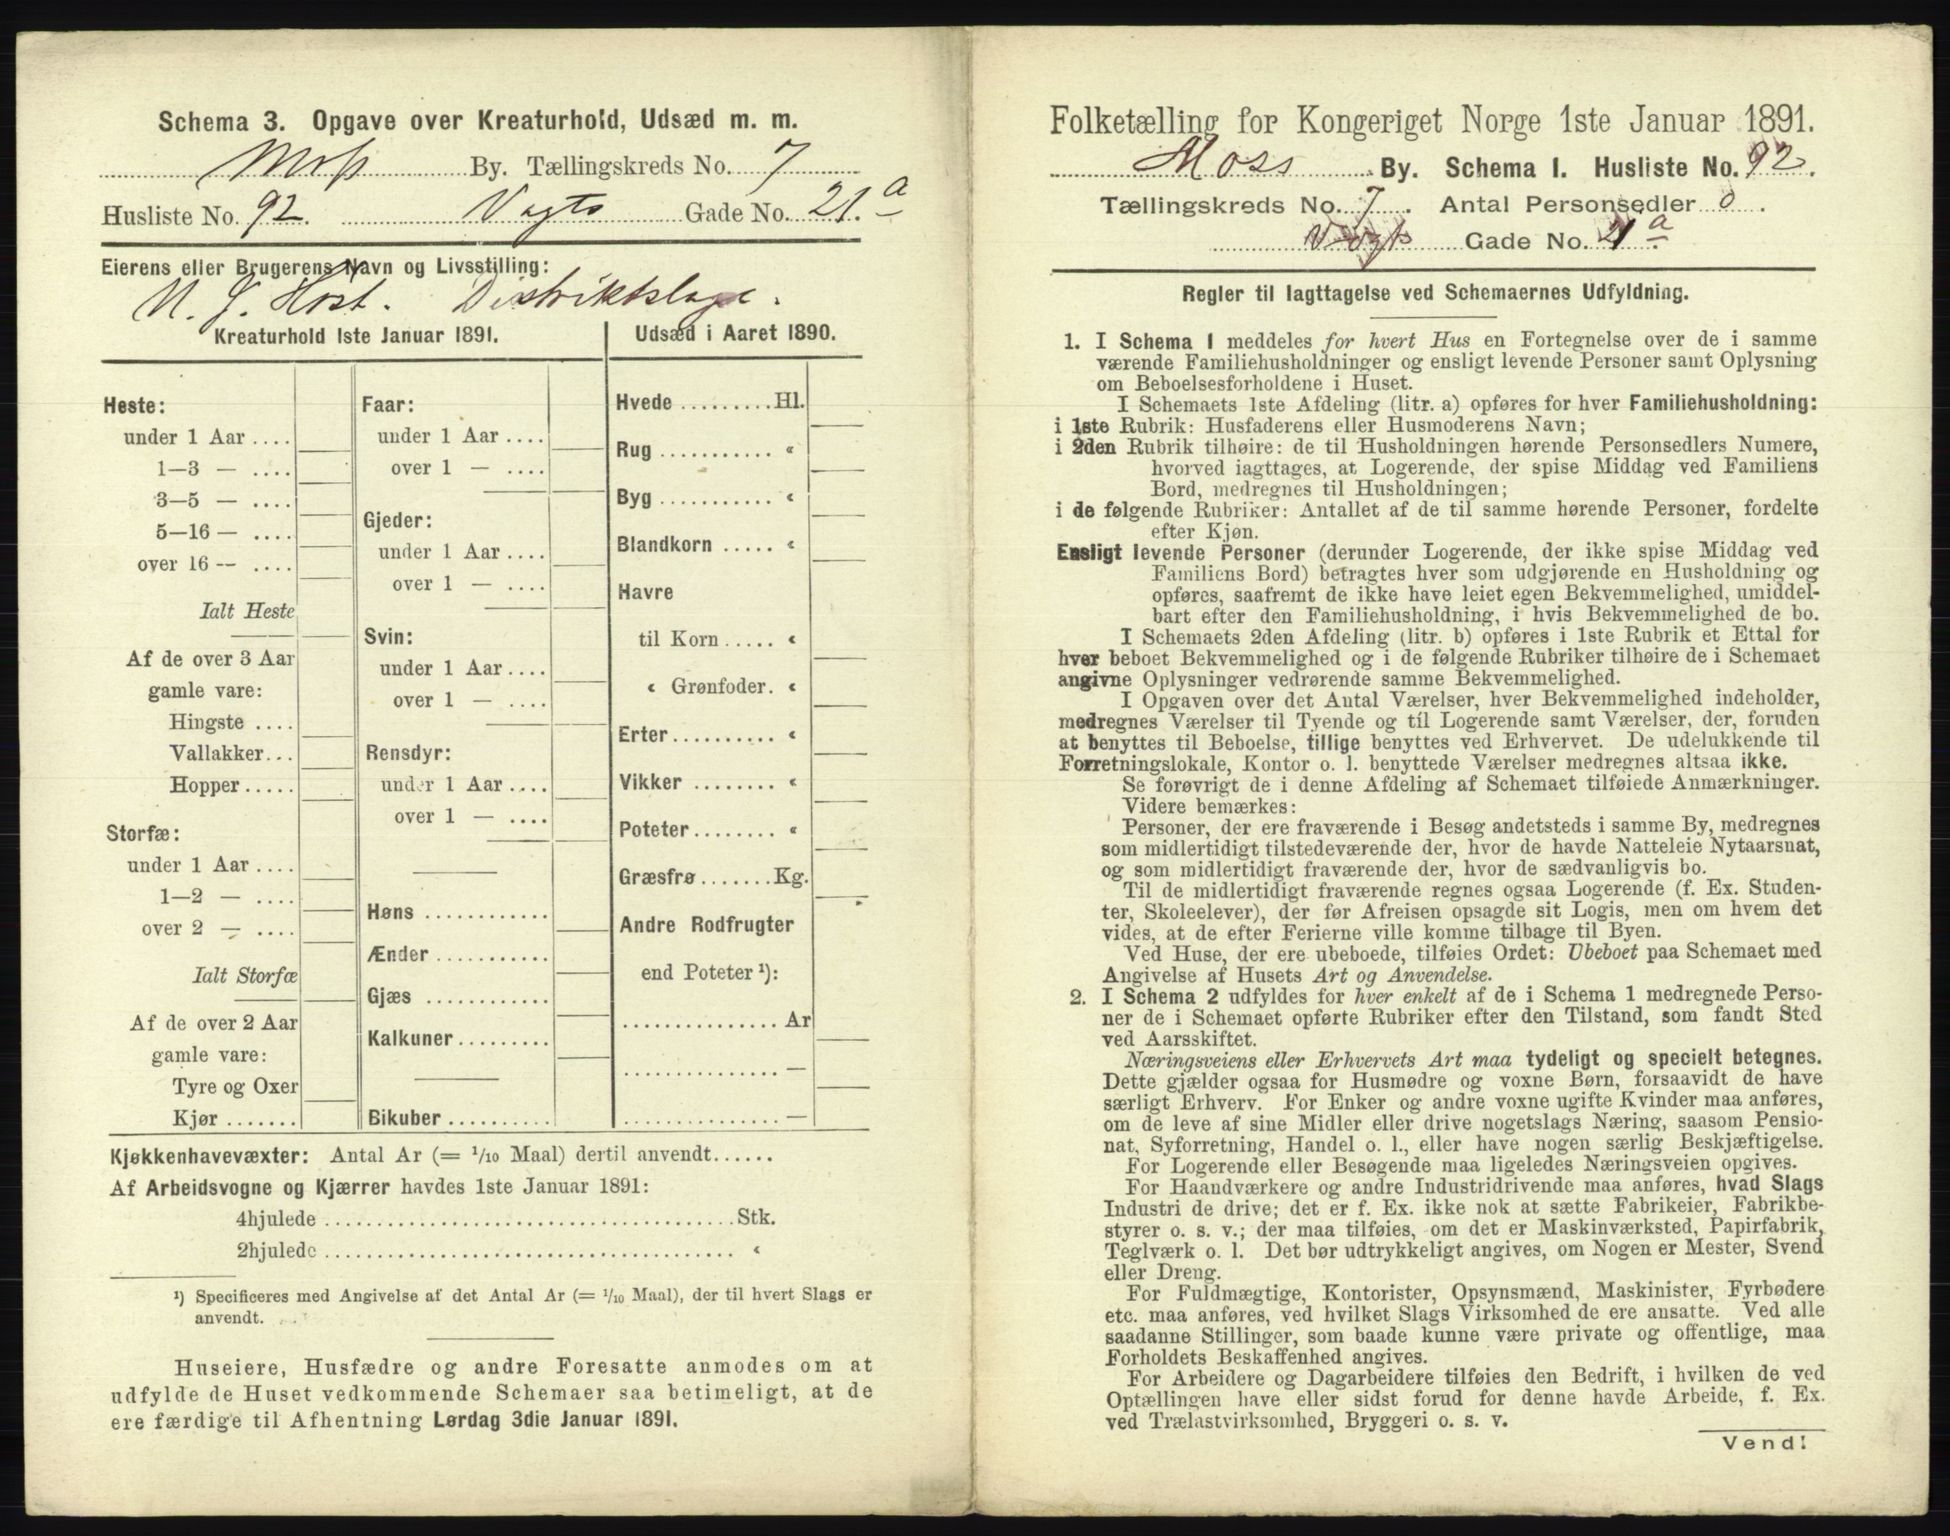 Schema 3. Opgave over Kreaturhold, Udsæd m. m.
Moss By. Tællingskreds No. 7
Husliste No. 92. Vogts Gade No. 21.a
Eierens eller Brugerens Navn og Livsstilling:
N. J. Høst. Distriktslæge.
Kreaturhold 1ste Januar 1891.
Heste:
under 1 Aar ....
1—3 — ....
3—5 — ....
5—16 — ....
over 16 — ....
Ialt Heste
Af de over 3 Aar
gamle vare:
Hingste ....
Vallakker...
Hopper.....
Storfæ:
under 1 Aar ....
1—2 — ....
over 2 — ....
Ialt Storfæ
Af de over 2 Aar
gamle vare:
Tyre og Oxer
Kjør .......
Faar:
under 1 Aar ....
over 1 — ....
Gjeder:
under 1 Aar ....
over 1 — ....
Svin:
under 1 Aar ....
over 1 — ....
Rensdyr:
under 1 Aar ....
over 1 — ....
Høns ............
Ænder ...........
Gjæs ............
Kalkuner.........
Bikuber ..........
Udsæd i Aaret 1890.
Hvede .........Hl.
Rug ........... «
Byg ........... «
Blandkorn ..... «
Havre
til Korn ..... «
« Grønfoder. «
Erter.......... «
Vikker ........ «
Poteter........ «
Græsfrø.......Kg.
Andre Rodfrugter
end Poteter ¹):
............... Ar
............... —
............... —
Kjøkkenhavevæxter: Antal Ar (= 1/10 Maal) dertil anvendt......
Af Arbeidsvogne og Kjærrer havdes 1ste Januar 1891:
4hjulede ......................................Stk.
2hjulede ...................................... «
¹) Specificeres med Angivelse af det Antal Ar (= 1/10 Maal), der til hvert Slags er
anvendt.
Huseiere, Husfædre og andre Foresatte anmodes om at
udfylde de Huset vedkommende Schemaer saa betimeligt, at de
ere færdige til Afhentning Lørdag 3die Januar 1891.
Folketælling for Kongeriget Norge 1ste Januar 1891.
Moss By. Schema I. Husliste No. 92.
Tællingskreds No. 7. Antal Personsedler 0.
Vogts Gade No. 21 a
Regler til Iagttagelse ved Schemaernes Udfyldning.
1. I Schema 1 meddeles for hvert Hus en Fortegnelse over de i samme
værende Familiehusholdninger og ensligt levende Personer samt Oplysning
om Beboelsesforholdene i Huset.
I Schemaets 1ste Afdeling (litr. a) opføres for hver Familiehusholdning:
i 1ste Rubrik: Husfaderens eller Husmoderens Navn;
i 2den Rubrik tilhøire: de til Husholdningen hørende Personsedlers Numere,
hvorved iagttages, at Logerende, der spise Middag ved Familiens
Bord, medregnes til Husholdningen;
i de følgende Rubriker: Antallet af de til samme hørende Personer, fordelte
efter Kjøn.
Ensligt levende Personer (derunder Logerende, der ikke spise Middag ved
Familiens Bord) betragtes hver som udgjørende en Husholdning og
opføres, saafremt de ikke have leiet egen Bekvemmelighed, umiddel-
bart efter den Familiehusholdning, i hvis Bekvemmelighed de bo.
I Schemaets 2den Afdeling (litr. b) opføres i 1ste Rubrik et Ettal for
hver beboet Bekvemmelighed og i de følgende Rubriker tilhøire de i Schemaet
angivne Oplysninger vedrørende samme Bekvemmelighed.
I Opgaven over det Antal Værelser, hver Bekvemmelighed indeholder,
medregnes Værelser til Tyende og til Logerende samt Værelser, der, foruden
at benyttes til Beboelse, tillige benyttes ved Erhvervet. De udelukkende til
Forretningslokale, Kontor o. l. benyttede Værelser medregnes altsaa ikke.
Se forøvrigt de i denne Afdeling af Schemaet tilføiede Anmærkninger.
Videre bemærkes:
Personer, der ere fraværende i Besøg andetsteds i samme By, medregnes
som midlertidigt tilstedeværende der, hvor de havde Natteleie Nytaarsnat,
og som midlertidigt fraværende der, hvor de sædvanligvis bo.
Til de midlertidigt fraværende regnes ogsaa Logerende (f. Ex. Studen-
ter, Skoleelever), der før Afreisen opsagde sit Logis, men om hvem det
vides, at de efter Ferierne ville komme tilbage til Byen.
Ved Huse, der ere ubeboede, tilføies Ordet: Ubeboet paa Schemaet med
Angivelse af Husets Art og Anvendelse.
2. I Schema 2 udfyldes for hver enkelt af de i Schema 1 medregnede Perso-
ner de i Schemaet opførte Rubriker efter den Tilstand, som fandt Sted
ved Aarsskiftet.
Næringsveiens eller Erhvervets Art maa tydeligt og specielt betegnes.
Dette gjælder ogsaa for Husmødre og voxne Børn, forsaavidt de have
særligt Erhverv. For Enker og andre voxne ugifte Kvinder maa anføres,
om de leve af sine Midler eller drive nogetslags Næring, saasom Pensio-
nat, Syforretning, Handel o. l., eller have nogen særlig Beskjæftigelse.
For Logerende eller Besøgende maa ligeledes Næringsveien opgives.
For Haandværkere og andre Industridrivende maa anføres, hvad Slags
Industri de drive; det er f. Ex. ikke nok at sætte Fabrikeier, Fabrikbe-
styrer o. s. v.; der maa tilføies, om det er Maskinværksted, Papirfabrik,
Teglværk o. l. Det bør udtrykkeligt angives, om Nogen er Mester, Svend
eller Dreng.
For Fuldmægtige, Kontorister, Opsynsmænd, Maskinister, Fyrbødere
etc. maa anføres, ved hvilket Slags Virksomhed de ere ansatte. Ved alle
saadanne Stillinger, som baade kunne være private og offentlige, maa
Forholdets Beskaffenhed angives.
For Arbeidere og Dagarbeidere tilføies den Bedrift, i hvilken de ved
Optællingen have eller sidst forud for denne havde Arbeide, f. Ex.
ved Trælastvirksomhed, Bryggeri o. s. v.
Vend!